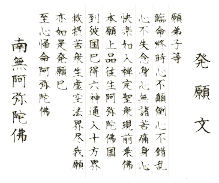 発願文
願弟子等
臨命終時心不顛倒心不錯乱
心不失念身心無諸苦痛身心
快楽如入禅定聖衆現前乗佛
本願上品往生阿弥陀佛国
到彼国已得六神通入十方界
救摂苦衆生虚空法界尽我願
亦如是発願已
至心帰命阿弥陀佛
南無阿弥陀佛